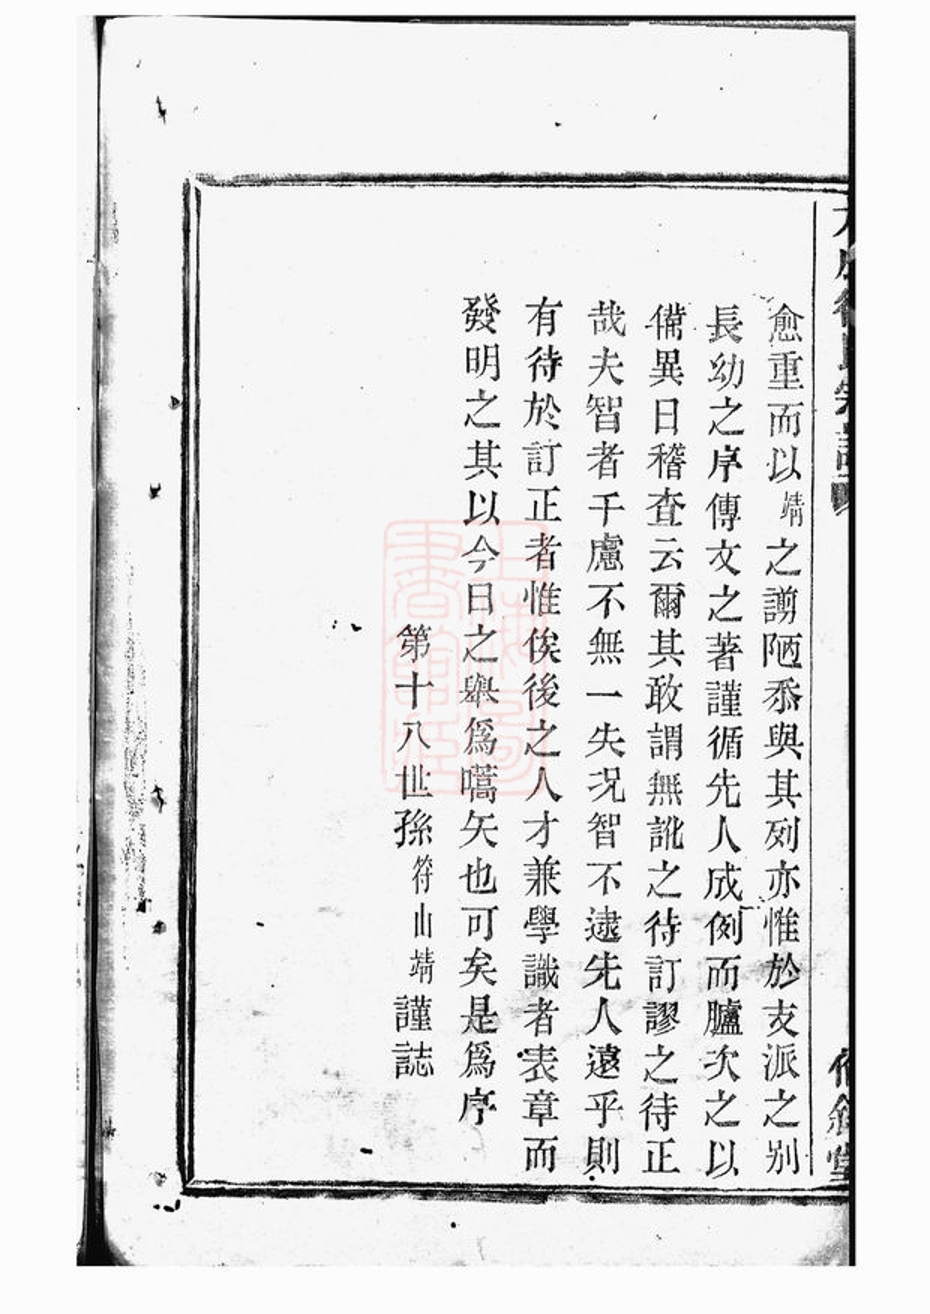 愈重而以靖之謭陋忝與其列亦惟於支派之別
長幼之序傳文之著謹循先人成例而臚次之以
備異日稽查云爾其敢謂無訛之待訂謬之待正
哉夫智者千慮不無一失况智不逮先人遠乎則
有待於訂正者惟俟後之人才兼學識者表章而
發明之其以今日之舉爲嚆矢也可矣是爲序
第十八世孫符山靖謹誌